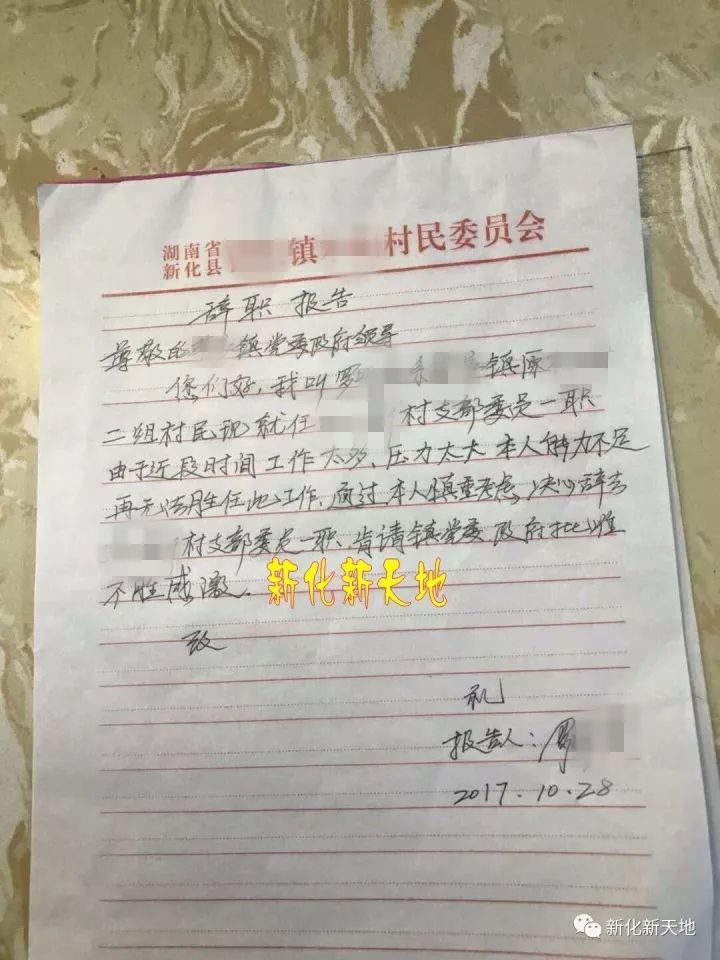 湖南省
新化县 镇 村民委员会
辞职报告
尊敬的 镇党委政府领导
您们好,我叫罗 系 镇原
二组村民现就任 村支部委员一职
由于近段时间工作太多、压力太大本人能力不足
再无法胜任此工作,通过本人慎重考虑,决心辞去
村支部委员一职肯请镇党委政府批准
不胜感激。
新化新天地
致
礼
报告人:罗
2017.10.28
新化新天地